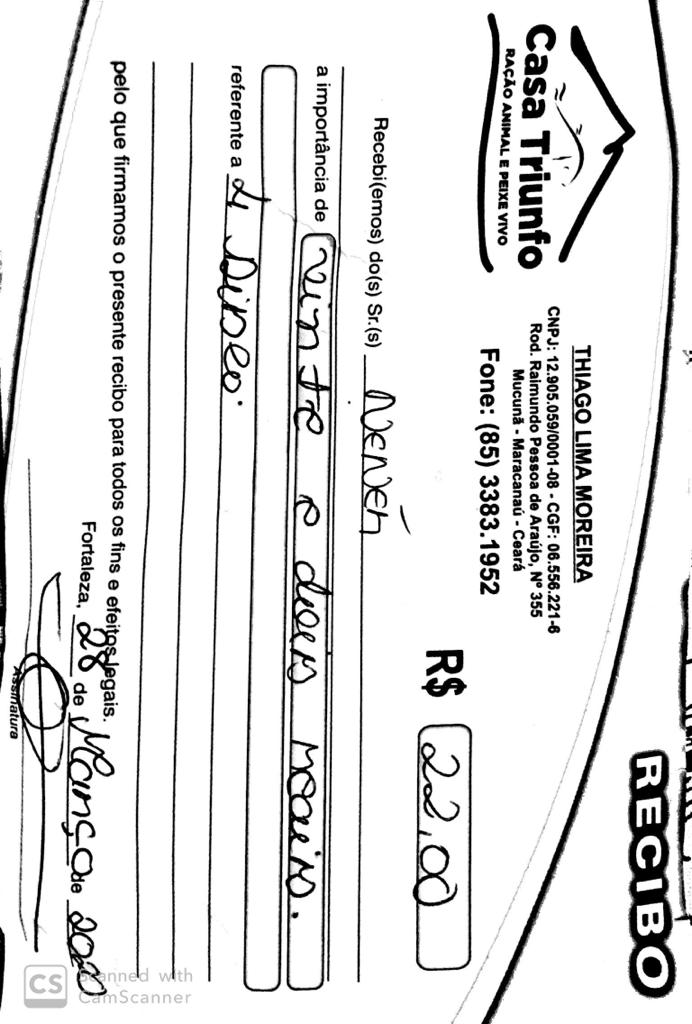 RECIBO
Casa Triunfo
RAÇÃO ANIMAL E PEIXE VIVO
THIAGO LIMA MOREIRA
CNPJ: 12.905.059/0001-08 - CGF: 06.556.221-6
Rod. Raimundo Pessoa de Araújo, Nº 355
Mucunã - Maracanaú - Ceará
Fone: (85) 3383.1952
R$ 22,00
Recebi(emos) do(s) Sr.(s) NENÉM
a importância de vinte e dois reais.
referente a
pelo que firmamos o presente recibo para todos os fins e efeitos legais.
Fortaleza, 28 de Março de 2020
Assinatura
CS Scanned with
CamScanner